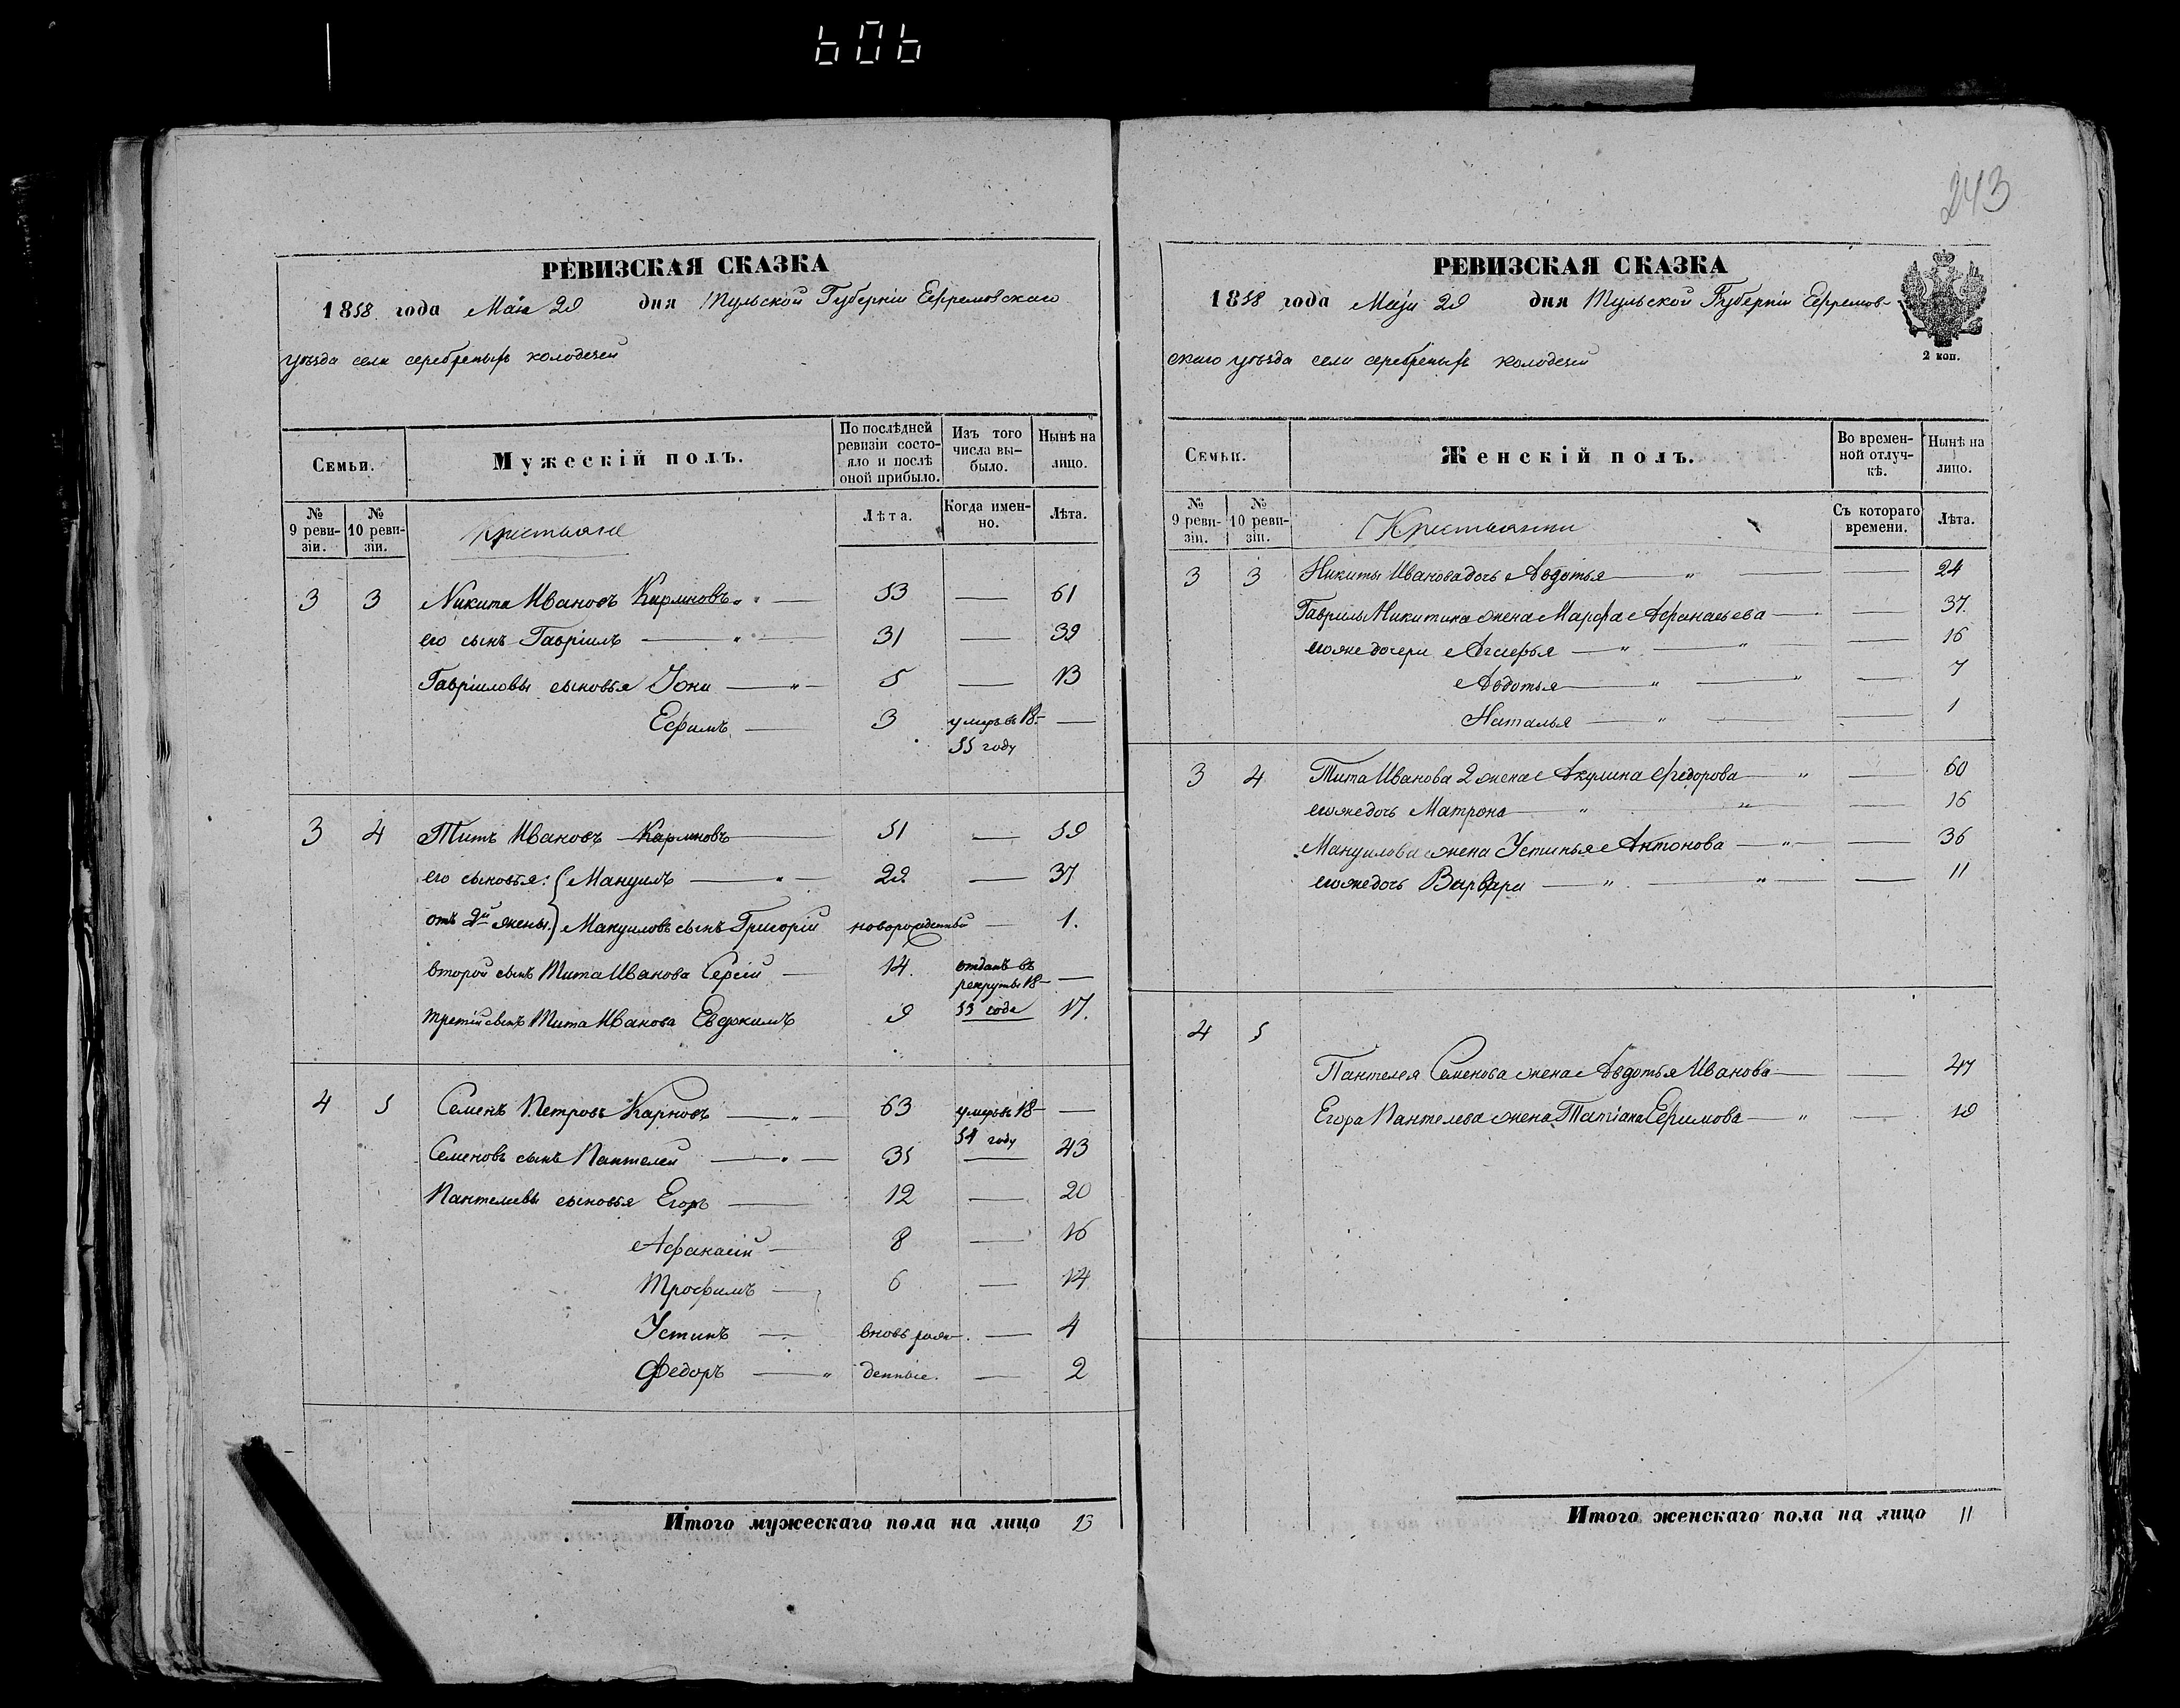 606
243
РЕВИЗСКАЯ СКАЗКА
1858 года Мая 29 дня Тульской Губерніи Ефремовскаго
уѣзда села серебреныхъ колодезей
Семьи.
Мужескій полъ.
По послѣдней ревизіи состояло и послѣ оной прибыло.
Изъ того числа выбыло.
Нынѣ на лицо.
№ 9 ревизіи.
№ 10 ревизіи.
Крестьяне
Лѣта.
Когда именно.
Лѣта.
3 3 Никита Ивановъ Карповъ 53 — 61
его сынъ Гавріилъ — 31 — 39
Гавріиловы сыновья Іона — 5 — 13
Ефимъ — 3 умеръ въ 18- —
55 году
3 4 Титъ Ивановъ Карповъ 51 — 59
его сыновья: Мануилъ — 29 — 37
отъ 2й жены. Мануиловъ сынъ Григорій новорожденный — 1.
второй сынъ Тита Иванова Сергій — 14. отданъ въ рекруты 18- —
третій сынъ Тита Иванова Евдокимъ 9 55 года 17.
4 5 Семенъ Петровъ Карповъ — 63 умеръ въ 18- —
54 году
Семеновъ сынъ Пантелей — 35 — 43
Пантелеевы сыновья Егоръ — 12 — 20
Афанасій — 8 — 16
Трофимъ — 6 — 14
Устинъ — вновь рож- — 4
Федоръ — денные. — 2
Итого мужескаго пола на лицо 13
РЕВИЗСКАЯ СКАЗКА
1858 года Маія 29 дня Тульской Губерніи Ефремов-
скаго уѣзда села серебреныхъ колодезей
2 коп.
Семьи.
Женскій полъ.
Во временной отлучкѣ.
Нынѣ на лицо.
№ 9 ревизіи.
№ 10 ревизіи.
Крестьянки
Съ котораго времени.
Лѣта.
3 3 Никиты Иванова дочь Авдотья — — 24
Гаврилы Никитина жена Марфа Афанасьева — — 37.
его же дочери — — 16
Авдотья — — 7
Наталья — — 1
3 4 Тита Иванова 2 жена Акулина Федорова — — 60
его же дочь Матрона — — 16
Мануилова жена Устинья Антонова — — 36
его же дочь Варвара — — 11
4 5
Пантелея Семенова жена Авдотья Иванова — — 47
Егора Пантелева жена Татіана Ефимова — — 19
Итого женскаго пола на лицо 11